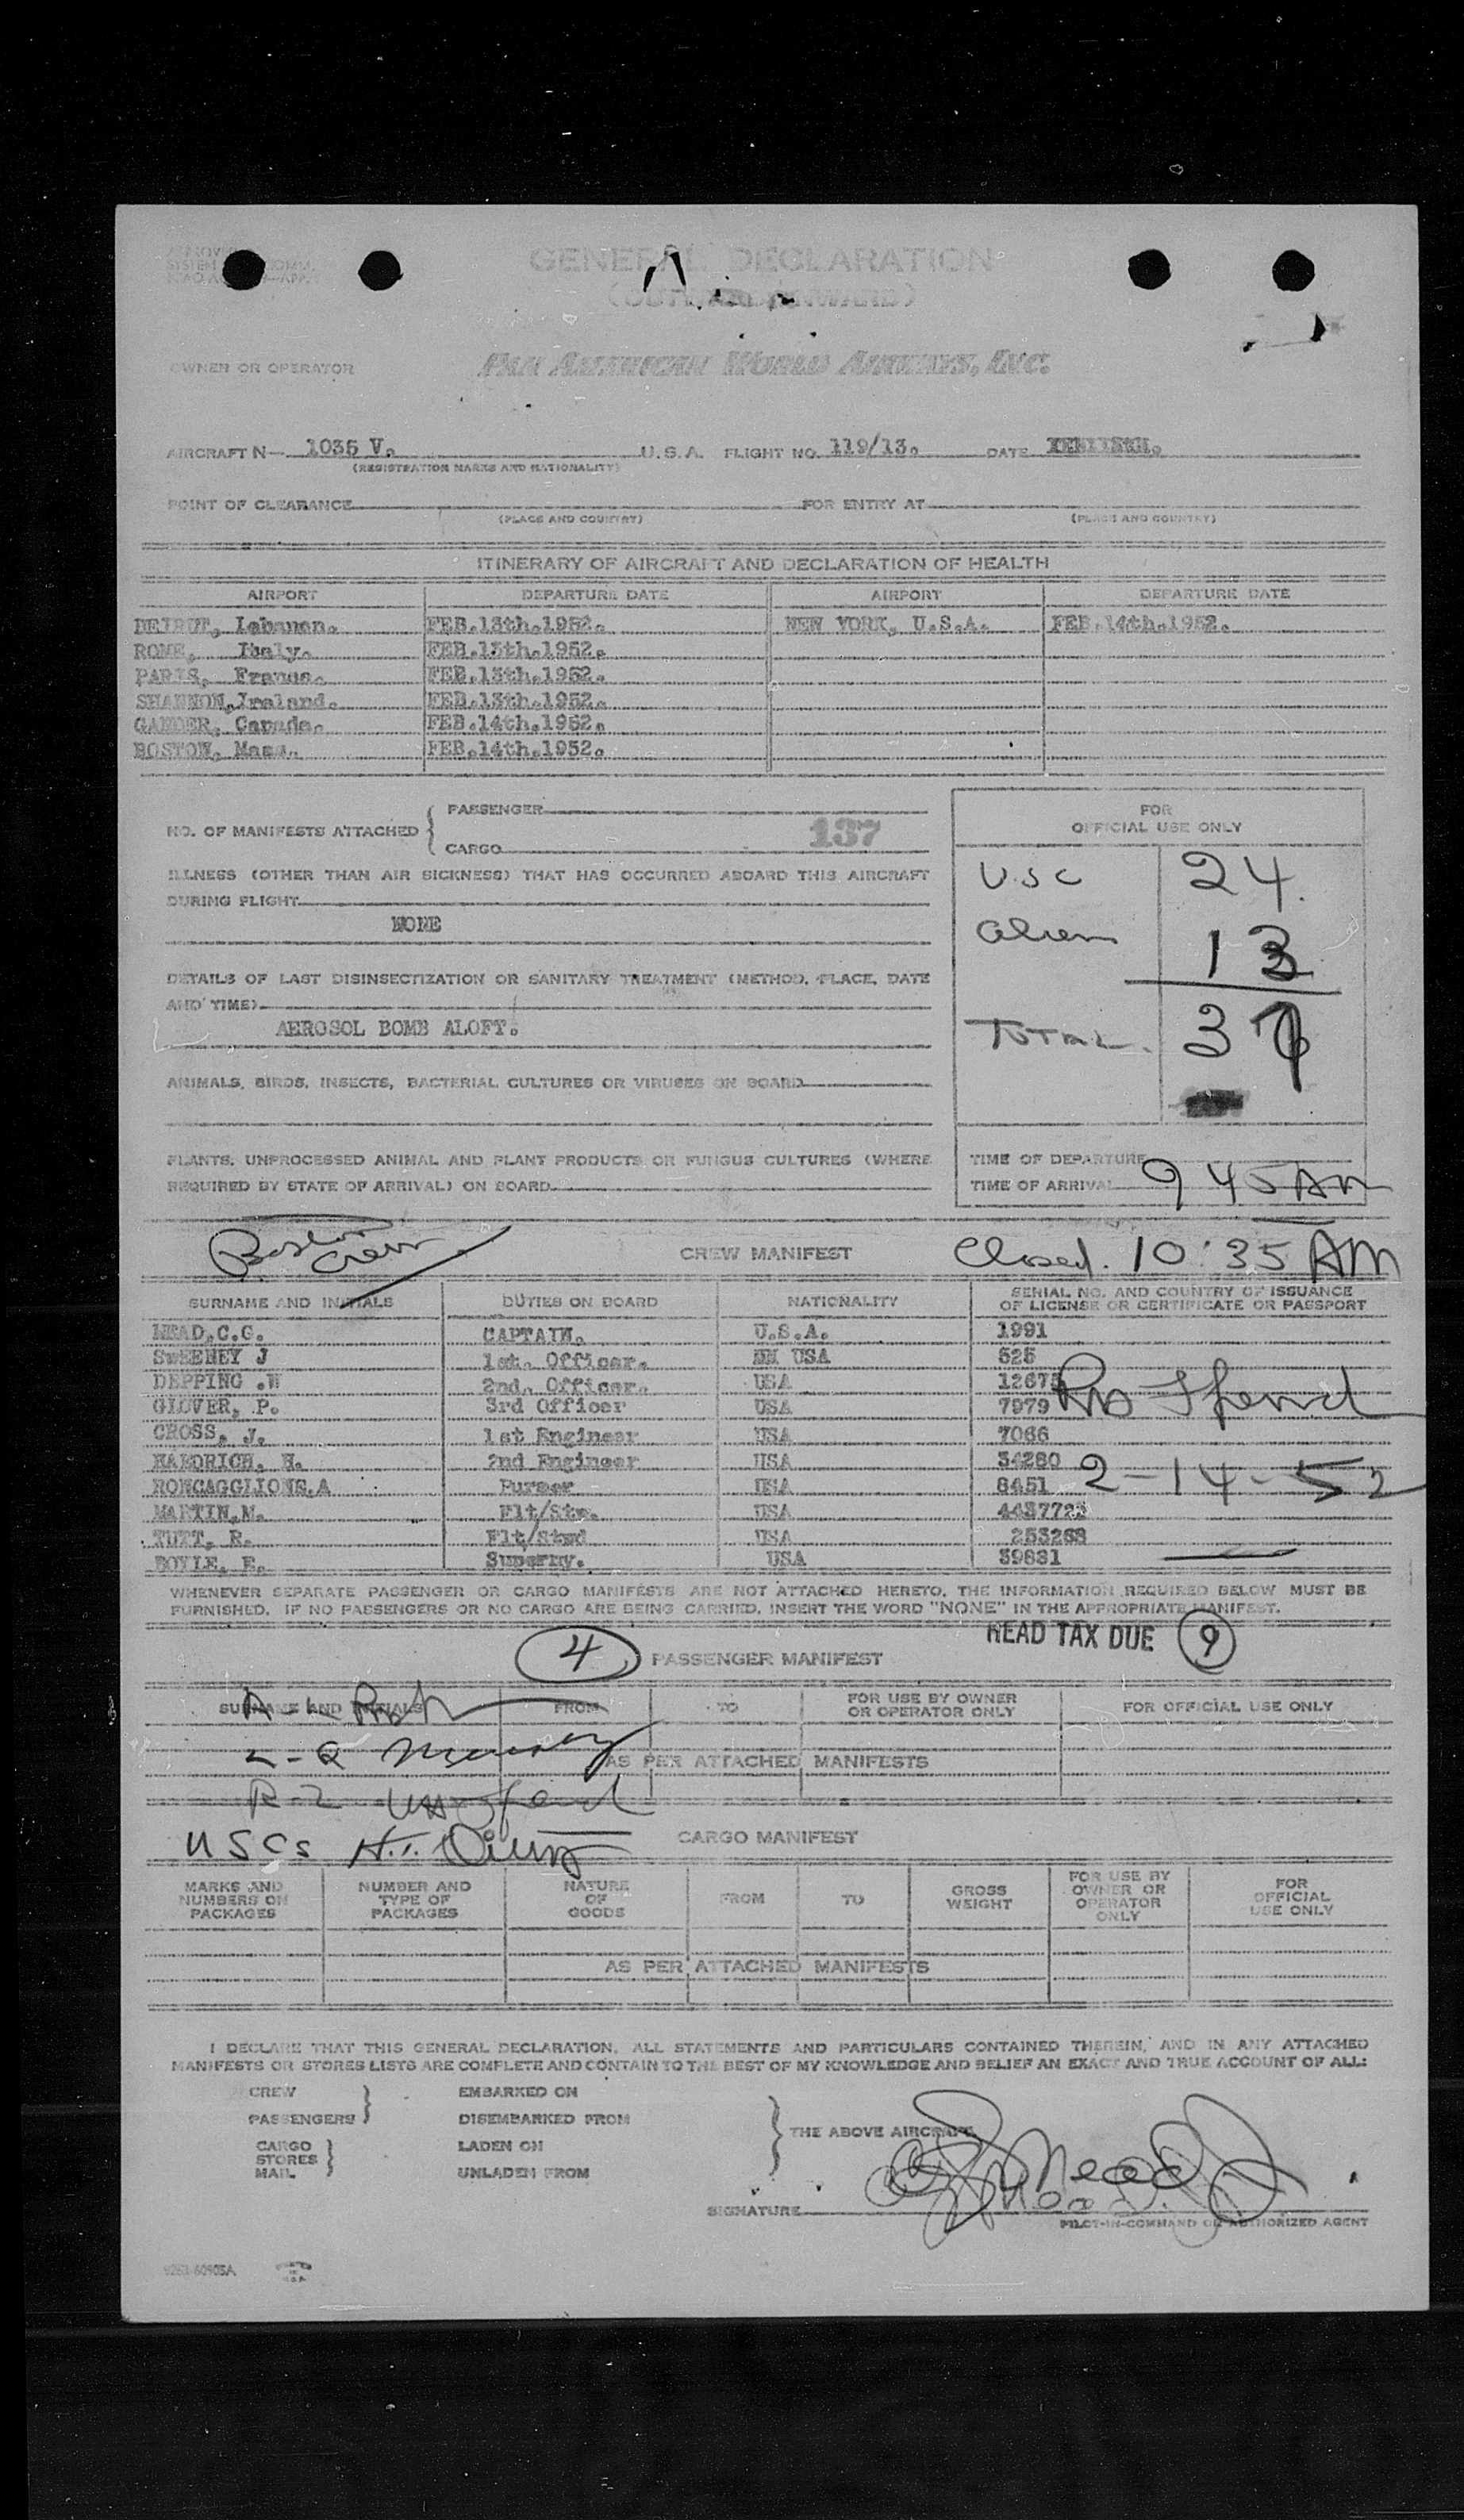 GENERAL DECLARATION
OWNER OR OPERATOR PAN AMERICAN WORLD AIRWAYS, INC.
AIRCRAFT N— 1035 V. U.S.A. FLIGHT NO. 119/13. DATE
(REGISTRATION MARKS AND NATIONALITY)
POINT OF CLEARANCE FOR ENTRY AT
(PLACE AND COUNTRY) (PLACE AND COUNTRY)
ITINERARY OF AIRCRAFT AND DECLARATION OF HEALTH
AIRPORT DEPARTURE DATE AIRPORT DEPARTURE DATE
BEIRUT, Lebanon. FEB.13th.1952. NEW YORK, U.S.A. FEB.14th.1952.
ROME, Italy. FEB.13th.1952.
PARIS, France. FEB.13th.1952.
SHANNON,Ireland. FEB.13th.1952.
GANDER, Canada. FEB.14th.1952.
BOSTON, Mass. FEB.14th.1952.
NO. OF MANIFESTS ATTACHED { PASSENGER
CARGO 137
FOR
OFFICIAL USE ONLY
USC 24
Alien 13
TOTAL 37
ILLNESS (OTHER THAN AIR SICKNESS) THAT HAS OCCURRED ABOARD THIS AIRCRAFT
DURING FLIGHT
NONE
DETAILS OF LAST DISINSECTIZATION OR SANITARY TREATMENT (METHOD, PLACE, DATE
AND TIME)
AEROSOL BOMB ALOFT.
ANIMALS, BIRDS, INSECTS, BACTERIAL CULTURES OR VIRUSES ON BOARD
PLANTS, UNPROCESSED ANIMAL AND PLANT PRODUCTS OR FUNGUS CULTURES (WHERE
REQUIRED BY STATE OF ARRIVAL) ON BOARD
TIME OF DEPARTURE
TIME OF ARRIVAL 9 45 AM
Boston
Crew
CREW MANIFEST Closed. 10:35 AM
SURNAME AND INITIALS DUTIES ON BOARD NATIONALITY SERIAL NO. AND COUNTRY OF ISSUANCE
OF LICENSE OR CERTIFICATE OR PASSPORT
MEAD,C.G. CAPTAIN. U.S.A. 1991
SWEENEY J 1st. Officer. USA 525
DEPPING .W 2nd. Officer. USA 12675
GLOVER, P. 3rd Officer USA 7979
CROSS, J. 1st Engineer USA 7066
HAEDRICH, H. 2nd Engineer USA 34280
RONCAGGLIONE.A Purser USA 8451
2-14-52
MARTIN,M. Flt/Stw. USA 4437723
TUTT, R. Flt/Stwd USA 253268
BOYLE, E. Supermy. USA 39831
WHENEVER SEPARATE PASSENGER OR CARGO MANIFESTS ARE NOT ATTACHED HERETO, THE INFORMATION REQUIRED BELOW MUST BE
FURNISHED. IF NO PASSENGERS OR NO CARGO ARE BEING CARRIED, INSERT THE WORD "NONE" IN THE APPROPRIATE MANIFEST.
HEAD TAX DUE 9
4 PASSENGER MANIFEST
SURNAME AND INITIALS FROM TO FOR USE BY OWNER
OR OPERATOR ONLY FOR OFFICIAL USE ONLY
AS PER ATTACHED MANIFESTS
USCs
CARGO MANIFEST
MARKS AND
NUMBERS ON
PACKAGES NUMBER AND
TYPE OF
PACKAGES NATURE
OF
GOODS FROM TO GROSS
WEIGHT FOR USE BY
OWNER OR
OPERATOR
ONLY FOR
OFFICIAL
USE ONLY
AS PER ATTACHED MANIFESTS
I DECLARE THAT THIS GENERAL DECLARATION, ALL STATEMENTS AND PARTICULARS CONTAINED THEREIN, AND IN ANY ATTACHED
MANIFESTS OR STORES LISTS ARE COMPLETE AND CONTAIN TO THE BEST OF MY KNOWLEDGE AND BELIEF AN EXACT AND TRUE ACCOUNT OF ALL:
CREW EMBARKED ON
PASSENGERS } DISEMBARKED FROM
THE ABOVE AIRCRAFT
CARGO LADEN ON
STORES }
MAIL UNLADEN FROM
SIGNATURE
PILOT-IN-COMMAND OR AUTHORIZED AGENT